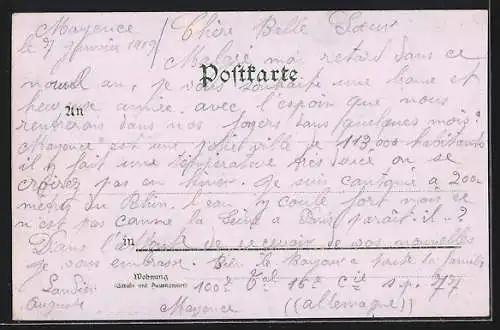 Mayence
le 7 Janvier 1919 / Chère Belle Sœur
Malgré mon retard dans ce
Postkarte
nouvel an, je vous souhaite une bonne et
An
heureuse année avec l'espoir que nous
rentrerons dans nos foyers dans quelques mois.
Mayence est une jolie ville de 113,000 habitants
il y fait une température très douce on se
croirez pas en hiver. Je suis cantonné à 200
mètres du Rhin. L'eau y coule fort mais ce
n'est pas comme la Seine à Paris paraît-il..?
in
Dans l'attente de recevoir de vos nouvelles
je vous embrasse. Bien le bonjour a toute la famille
Wohnung
(Straße und Hausnummer)
Auguste
100e Bal 16e Cie S.P. 77
Mayence ((allemagne))